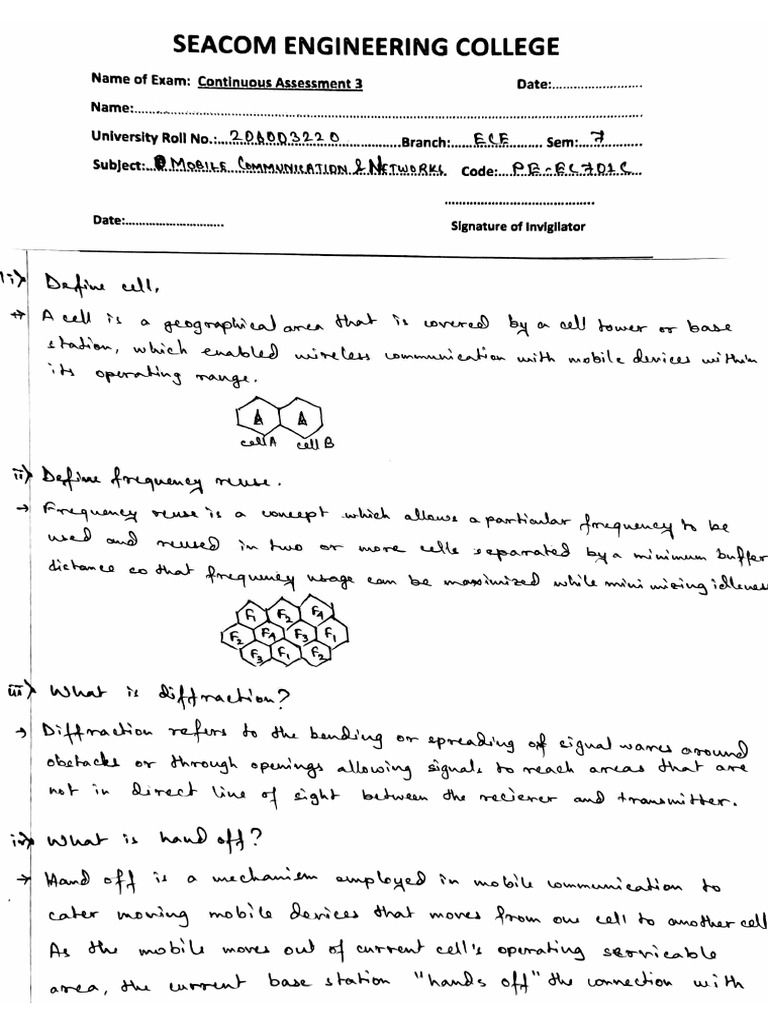 SEACOM ENGINEERING COLLEGE
Name of Exam: Continuous Assessment 3 Date:...........................
Name:...........................
University Roll No.:...206003220...........Branch:......ECE......... Sem:...7...........
Subject:...MOBILE COMMUNICATION & NETWORKS. Code:....PE-EC701C......
Date:...........................
Signature of Invigilator
1 i) Define cell.
→ A cell is a geographical area that is covered by a cell tower or base
station, which enabled wireless communication with mobile devices within
its operating range.
A A
cell A cell B
ii) Define frequency reuse.
→ Frequency reuse is a concept which allows a particular frequency to be
used and reused in two or more cells separated by a minimum buffer
distance so that frequency usage can be maximized while minimizing idleness
F1 F2 F4
F2 F4 F3 F1
F3 F1 F2
iii) What is diffraction?
→ Diffraction refers to the bending or spreading of signal waves around
obstacles or through openings allowing signals to reach areas that are
not in direct line of sight between the reciever and transmitter.
iv) What is hand off?
→ Hand off is a mechanism employed in mobile communication to
cater moving mobile devices that moves from one cell to another cell
As the mobile moves out of current cell's operating servicable
area, the current base station "hands off" the connection with